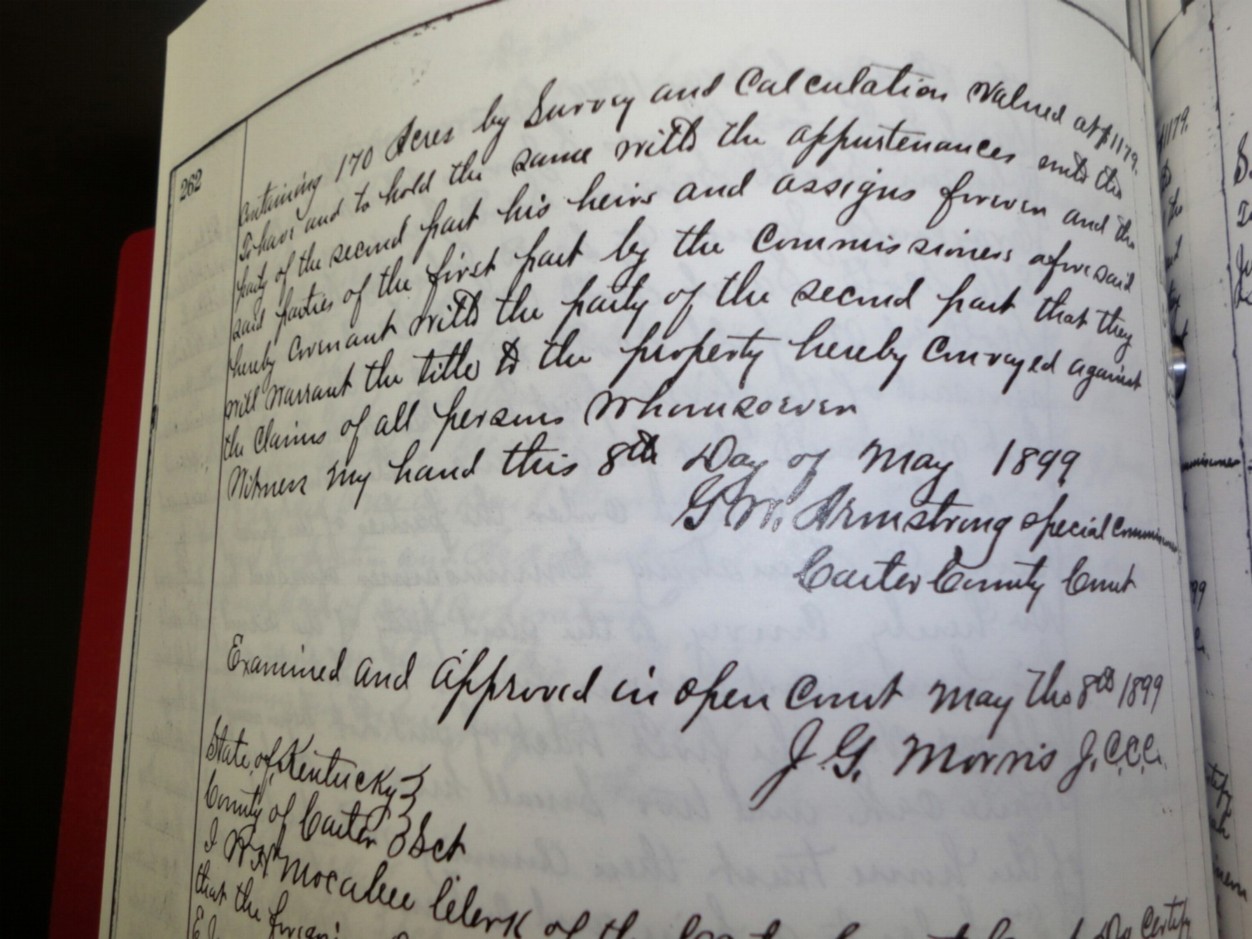 262
Containing 170 Acres by Survey and Calculation Valued at $1179.
To have and to hold the same with the appurtenances unto the
party of the second part his heirs and assigns forever and the
said parties of the first part by the Commissioners aforesaid
hereby Covenant with the party of the second part that they
will warrant the title to the property hereby Conveyed against
the Claims of all persons Whomsoever
Witness my hand this 8th Day of May 1899
G. W. Armstrong Special
Carter County Court
Examined and Approved in open Court May the 8th 1899
J. G. Morris J.C.C.C.
State of Kentucky }
County of Carter } Sct
I Mocabee Clerk of the County Court Do Certify
that the